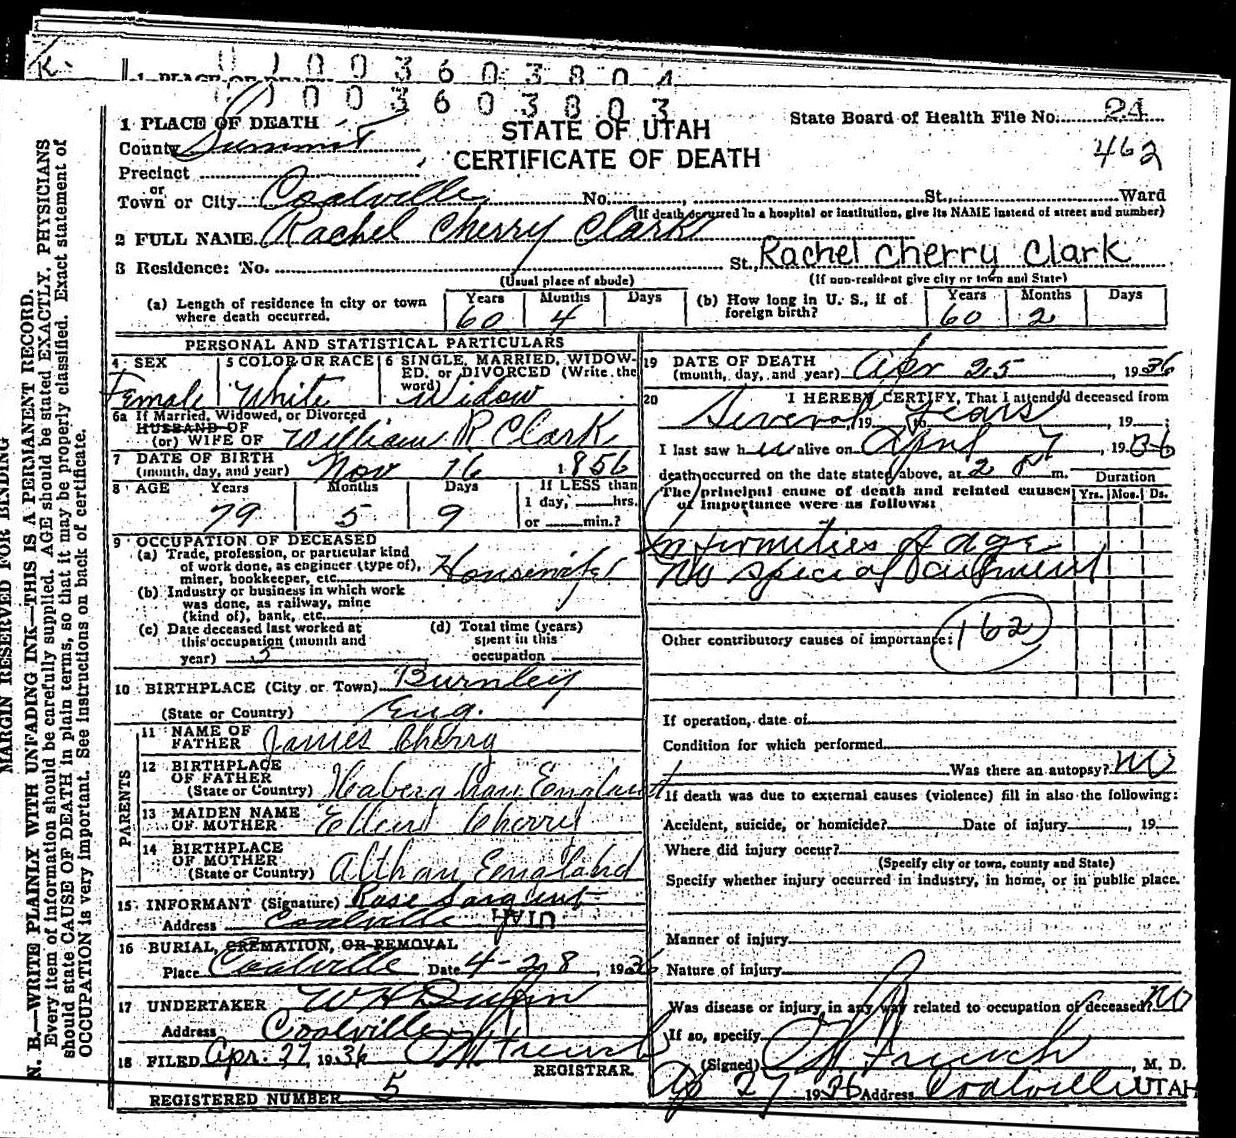 K.
1 PLACE OF DEATH
0 1 0 0 3 6 0 3 8 0 4
0 1 0 0 3 6 0 3 8 0 3
1 PLACE OF DEATH
State Board of Health File No. 24
STATE OF UTAH
462
County Summit
CERTIFICATE OF DEATH
Precinct
or
Town or City Coalville No. , St., Ward
(If death occurred in a hospital or institution, give its NAME instead of street and number)
2 FULL NAME Rachel Cherry Clark
3 Residence: No. St., Rachel Cherry Clark
(Usual place of abode) (If non-resident give city or town and State)
(a) Length of residence in city or town where death occurred. Years 60 Months 4 Days
(b) How long in U. S., if of foreign birth? Years 60 Months 2 Days
PERSONAL AND STATISTICAL PARTICULARS
4 SEX Female
5 COLOR OR RACE White
6 SINGLE, MARRIED, WIDOWED, or DIVORCED (Write the word) Widow
6a If Married, Widowed, or Divorced
HUSBAND OF
(or) WIFE OF William R Clark
7 DATE OF BIRTH
(month, day, and year) Nov 16 1856
8 AGE Years 79 Months 5 Days 9
If LESS than
1 day, hrs.
or min.?
9 OCCUPATION OF DECEASED
(a) Trade, profession, or particular kind
of work done, as engineer (type of),
miner, bookkeeper, etc. Housewife
(b) Industry or business in which work
was done, as railway, mine
(kind of), bank, etc.
(c) Date deceased last worked at
this occupation (month and
year) 5
(d) Total time (years)
spent in this
occupation
10 BIRTHPLACE (City or Town) Burnley
(State or Country) Eng.
PARENTS
11 NAME OF
FATHER James Cherry
12 BIRTHPLACE
OF FATHER
(State or Country) England
13 MAIDEN NAME
OF MOTHER Ellen Cherry
14 BIRTHPLACE
OF MOTHER
(State or Country) Altham England
15 INFORMANT (Signature) Rose Sargent
Address Coalville UTAH
16 BURIAL, CREMATION, OR REMOVAL
Place Coalville Date 4-28, 1936
17 UNDERTAKER W H
Address Coalville
18 FILED Apr. 27 1936
REGISTRAR
REGISTERED NUMBER 5
19 DATE OF DEATH
(month, day, and year) Apr 25, 1936
20 I HEREBY CERTIFY, That I attended deceased from
Several 19 to Years, 19 ;
I last saw h alive on April 7, 1936
death occurred on the date stated above, at 2 P m.
Duration
The principal cause of death and related causes
of importance were as follows:
Yrs. Mos. Ds.
Infirmities of age
No special ailment
Other contributory causes of importance: 162
If operation, date of
Condition for which performed
Was there an autopsy? No
If death was due to external causes (violence) fill in also the following:
Accident, suicide, or homicide? Date of injury , 19
Where did injury occur?
(Specify city or town, county and State)
Specify whether injury occurred in industry, in home, or in public place.
Manner of injury
Nature of injury
Was disease or injury in any way related to occupation of deceased? No
If so, specify
(Signed) , M. D.
27 1936 Address Coalville UTAH
MARGIN RESERVED FOR BINDING
N. B.—WRITE PLAINLY WITH UNFADING INK—THIS IS A PERMANENT RECORD.
Every item of information should be carefully supplied. AGE should be stated EXACTLY. PHYSICIANS
should state CAUSE OF DEATH in plain terms, so that it may be properly classified. Exact statement of
OCCUPATION is very important. See instructions on back of certificate.